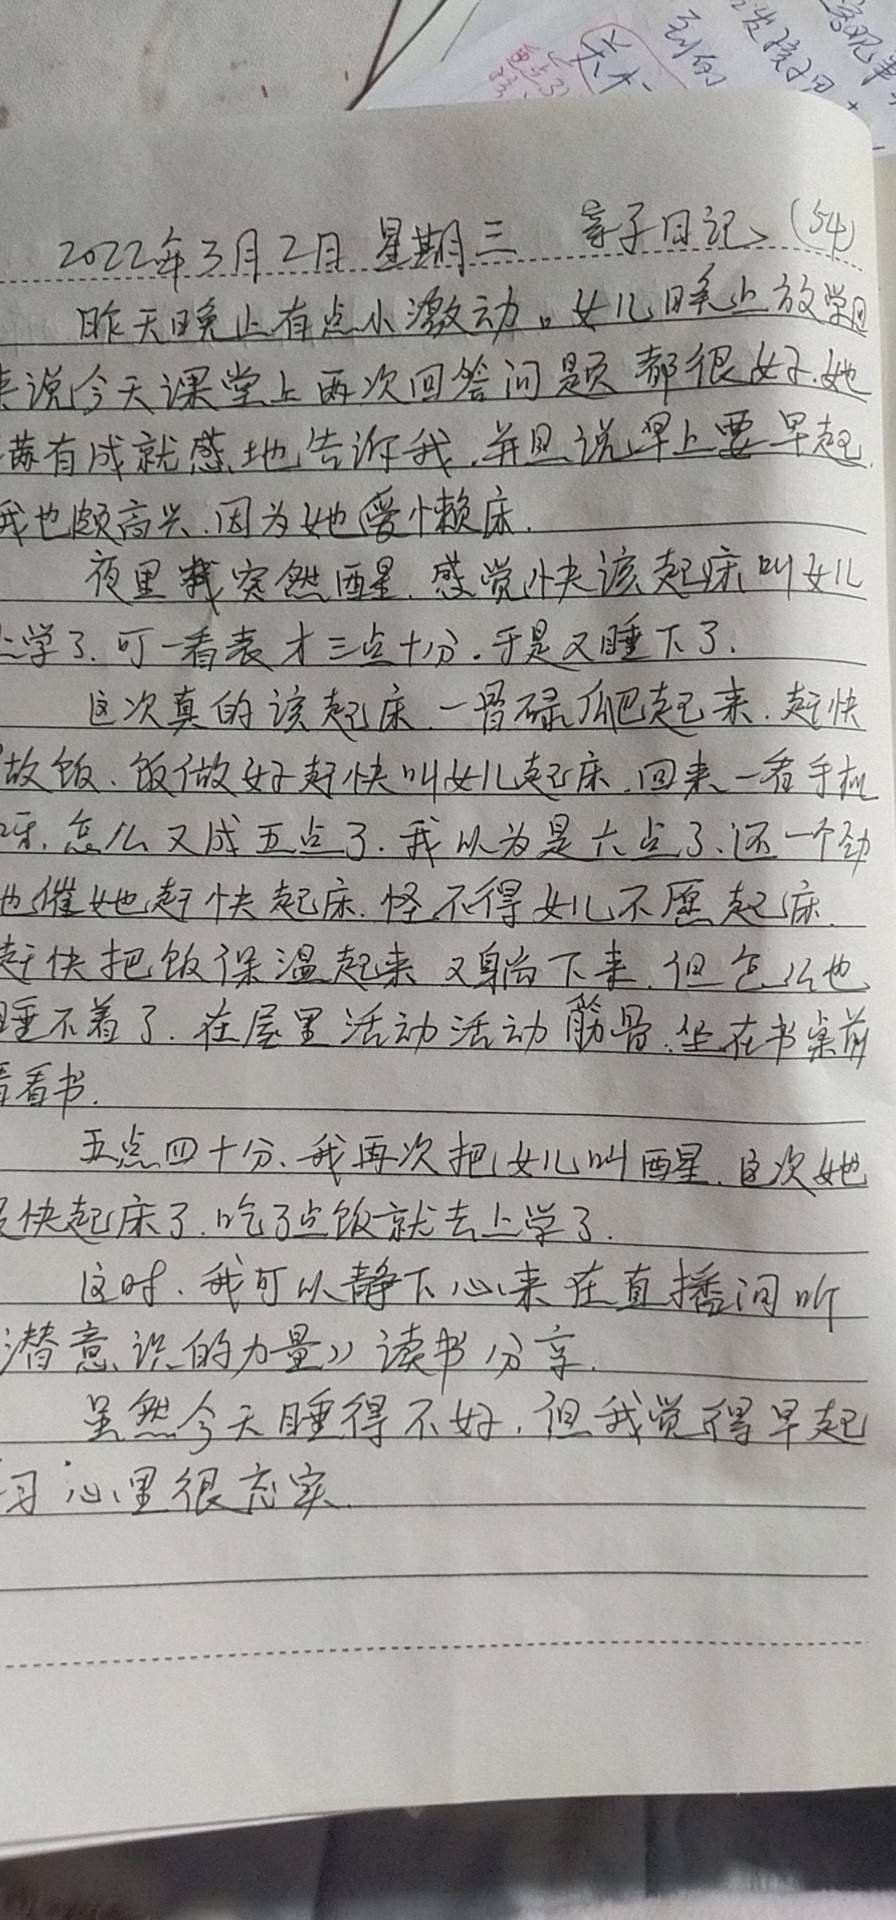 到的
2022年3月2日 星期三 亲子日记 (54)
昨天晚上有点小激动。女儿晚上放学回
来说今天课堂上两次回答问题都很好.她
满有成就感地告诉我.并且说早上要早起.
我也颇高兴.因为她爱懒床.
夜里我突然醒.感觉快该起床叫女儿
上学了.可一看表才三点十分.于是又睡下了.
这次真的该起床.一骨碌爬起来.赶快
做饭.饭做好赶快叫女儿起床.回来一看手机
呀.怎么又成五点了.我以为是六点了.还一个劲
地催她赶快起床.怪不得女儿不愿起床.
赶快把饭保温起来 又躺下来.但怎么也
睡不着了.在屋里活动活动筋骨.坐在书桌前
看看书.
五点四十分.我再次把女儿叫醒.这次她
很快起床了.吃了点饭就去上学了.
这时.我可以静下心来在直播间听
潜意识的力量》读书分享.
虽然今天睡得不好.但我觉得早起
习心里很充实.